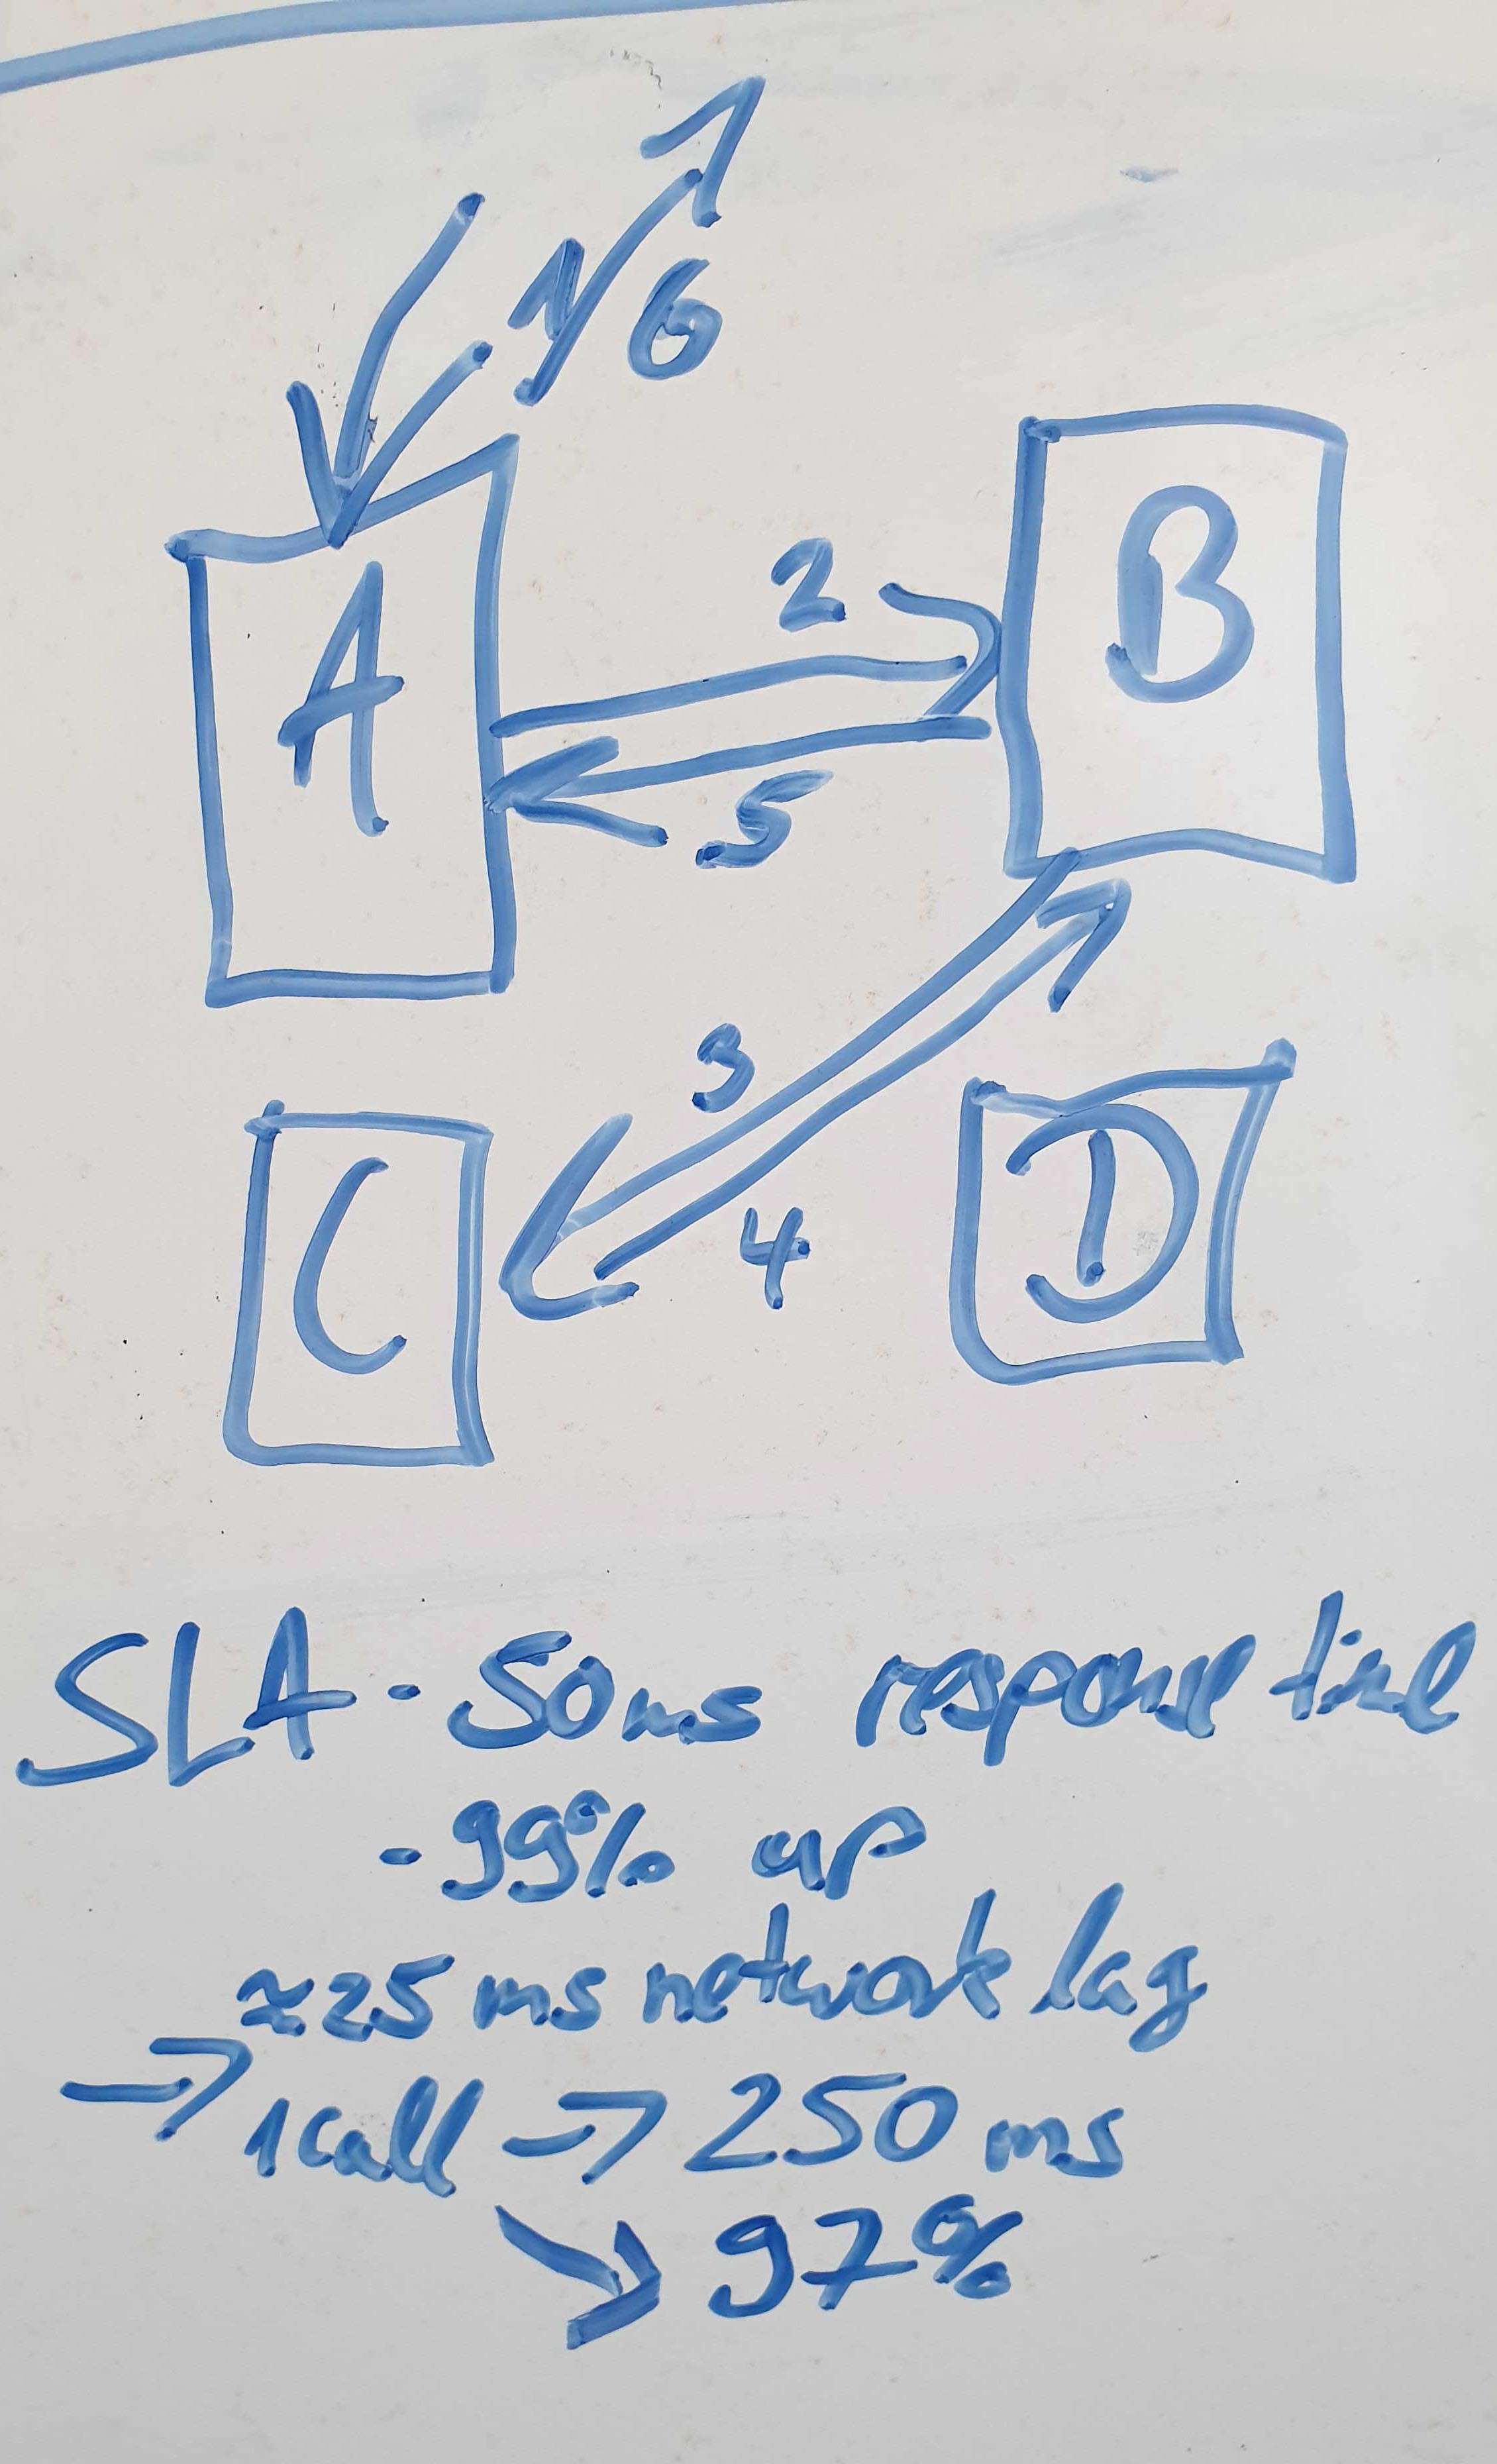 1 6
A
B
2
5
3
4
C
D
SLA - 50ms response time
- 99% up
≈25 ms network lag
→ 1 call → 250 ms
↘ 97%